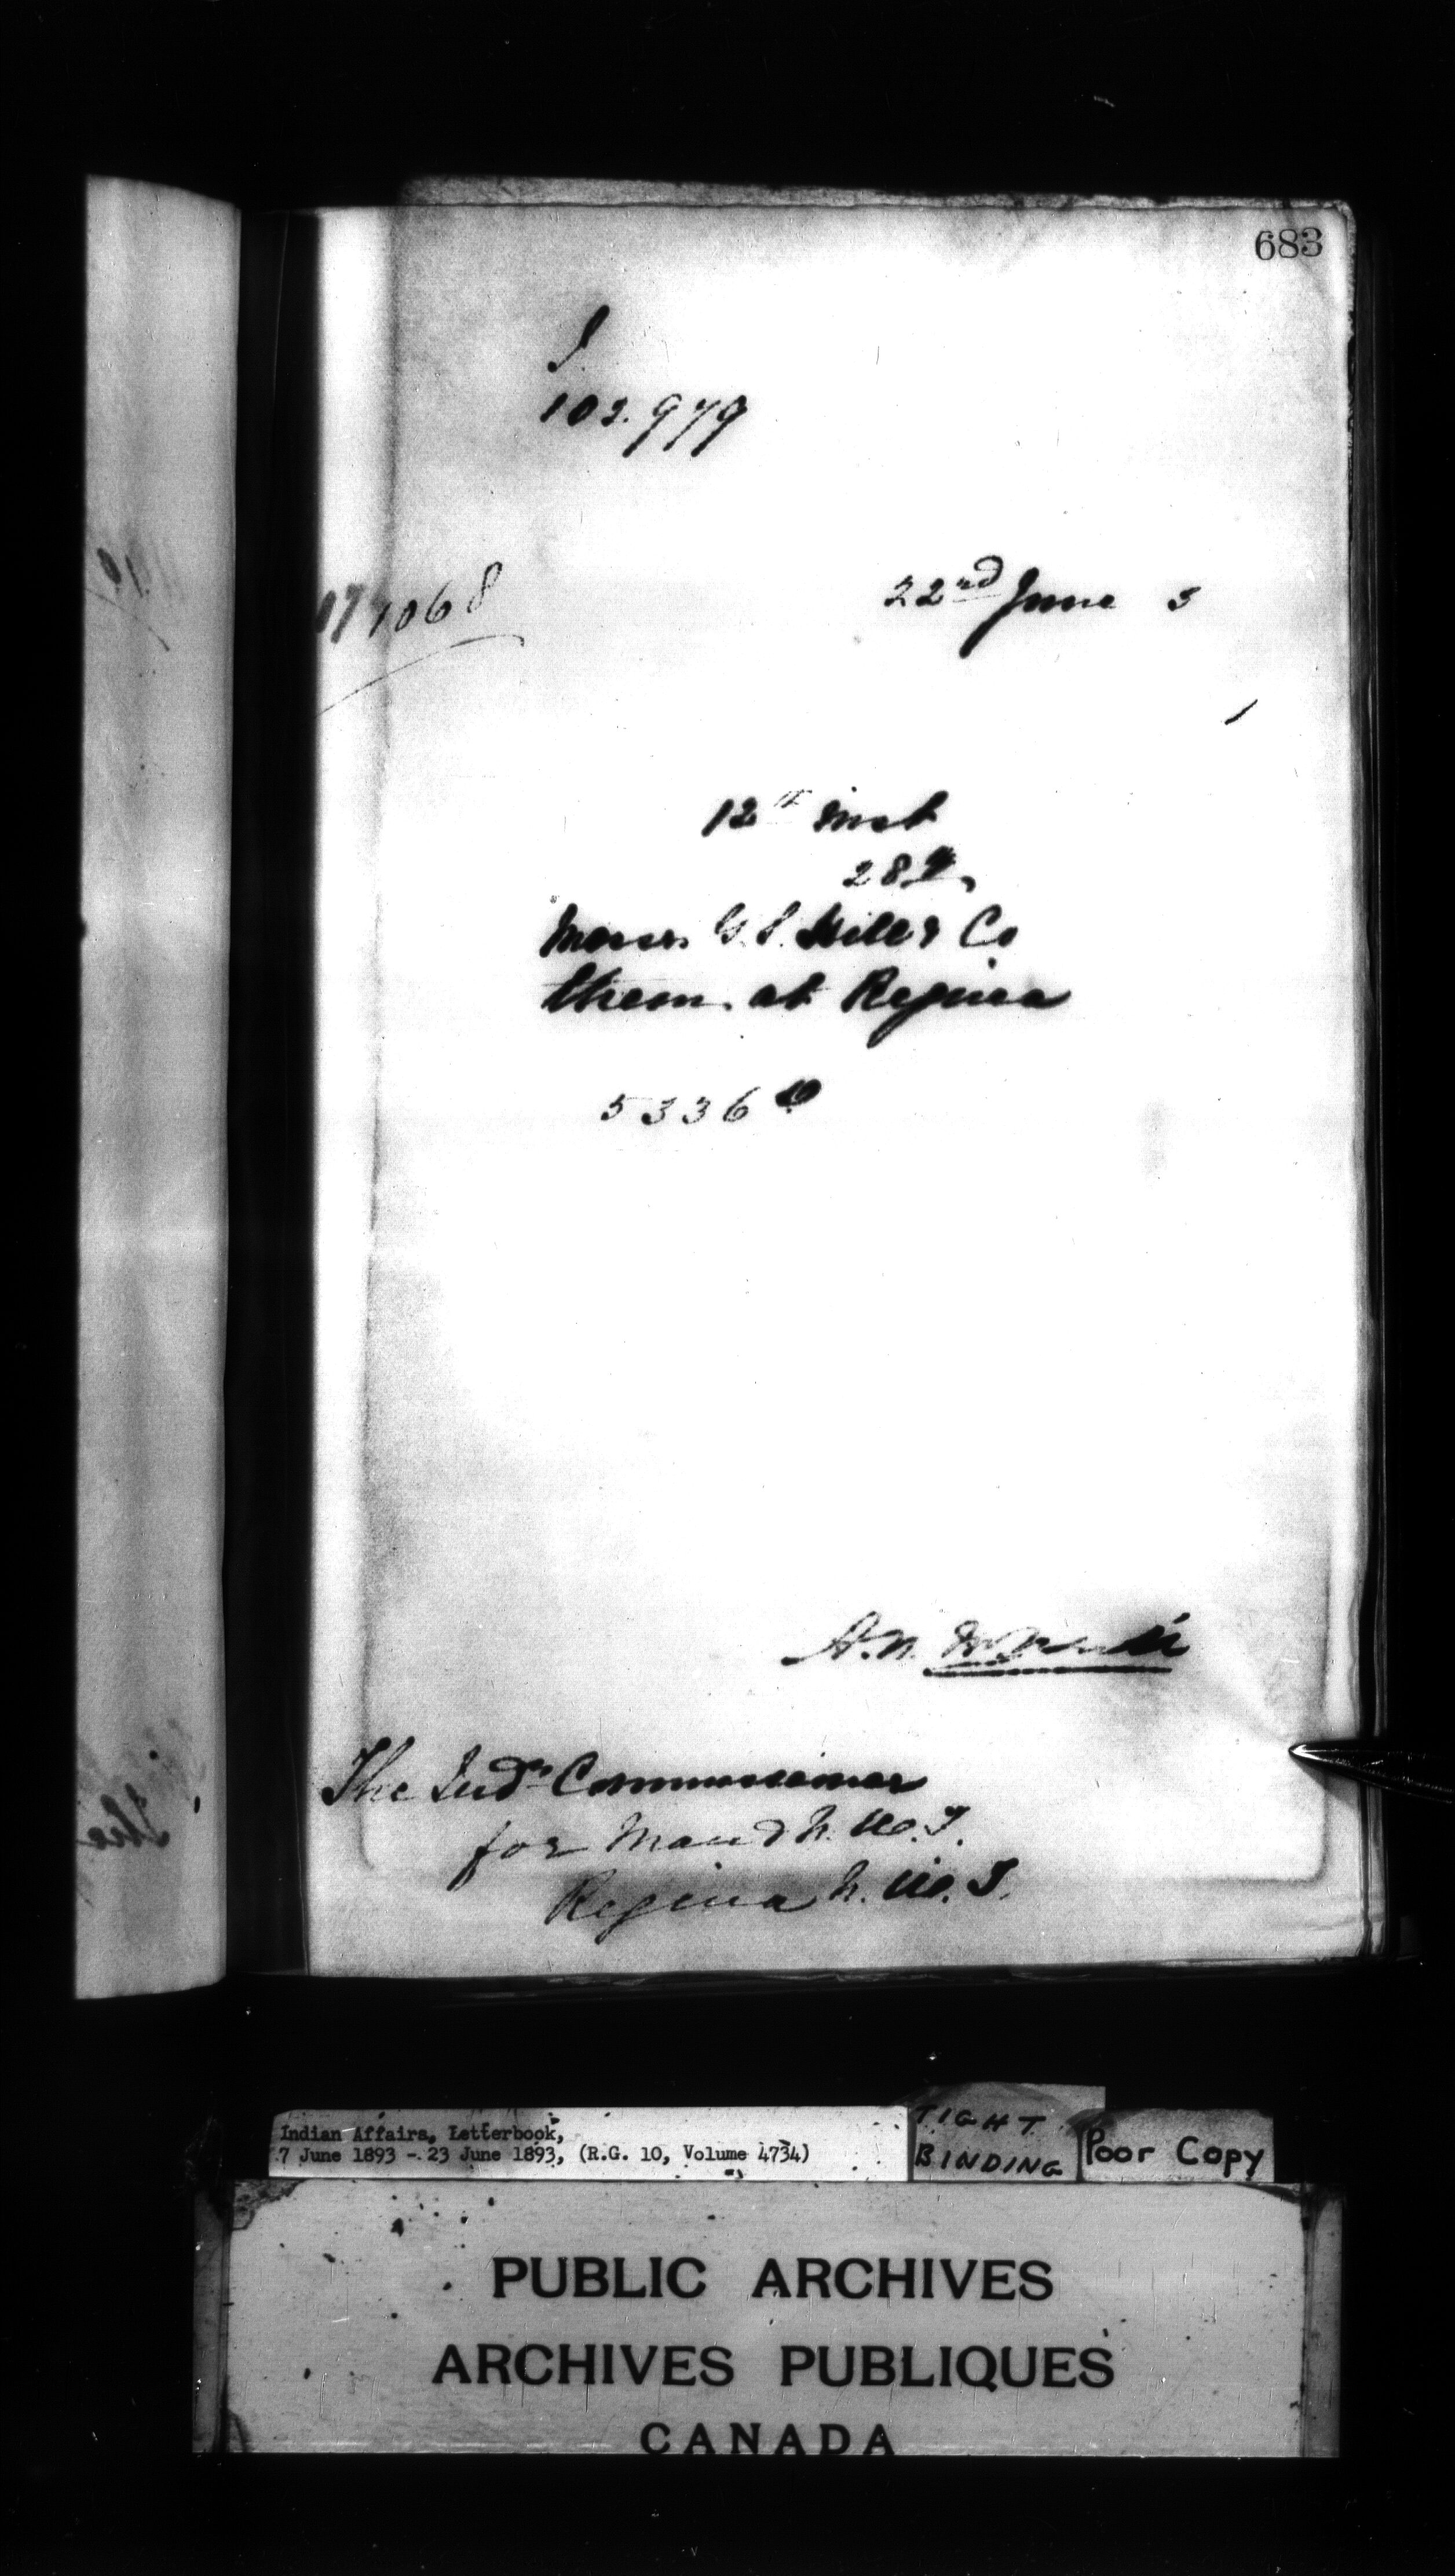 683
S.
102.979
22nd June 3
171068
12th inst
28th,
Messrs G. S. & Co
them at Regina
5336
A. N.
The Indn Commissioner
for Man & N. W. T.
Regina N. W. T.
Indian Affairs, Letterbook,
7 June 1893 - 23 June 1893, (R.G. 10, Volume 4734)
TIGHT
BINDING
Poor Copy
PUBLIC ARCHIVES
ARCHIVES PUBLIQUES
CANADA